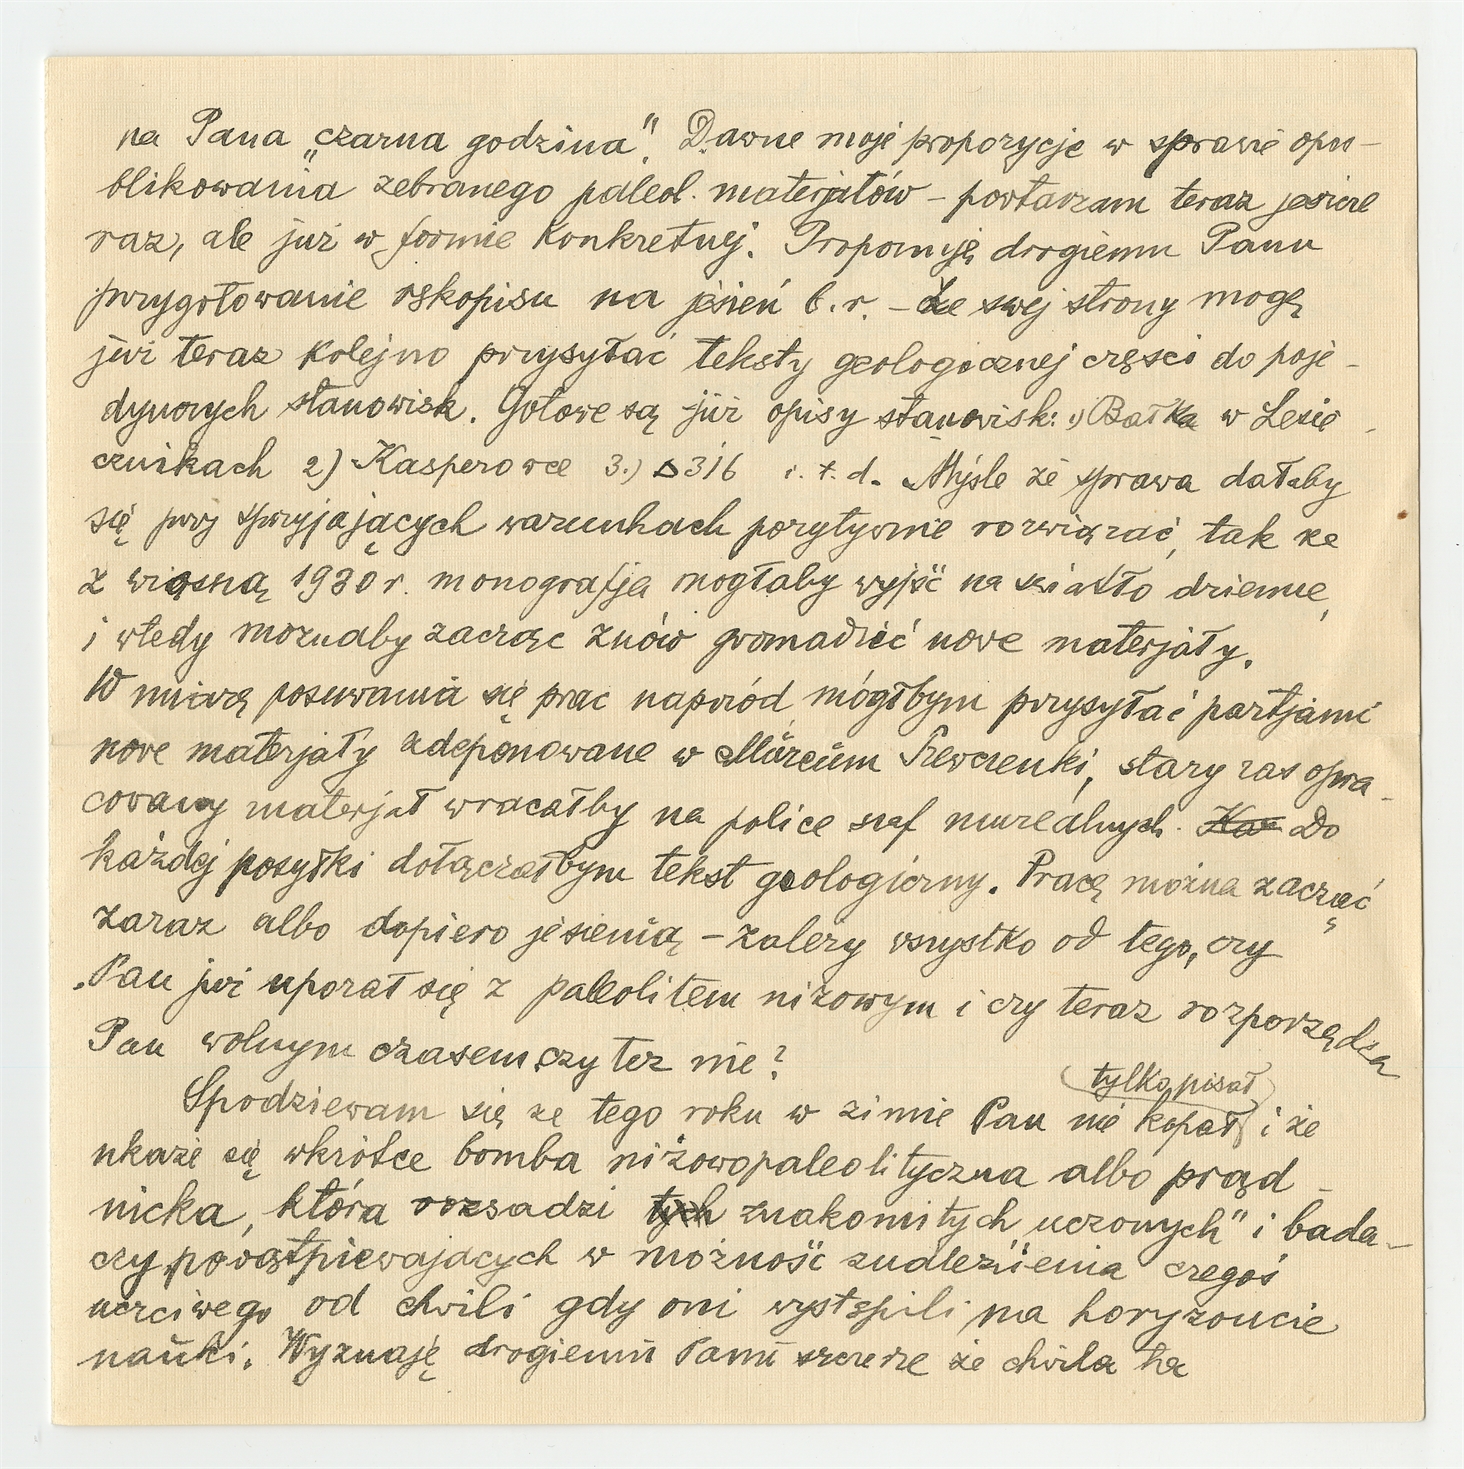 na Pana „czarna godzina”. Dawne moje propozycje w sprawie opu-
blikowania zebranego paleol. materjałów – powtarzam teraz jeszcze
raz, ale już w formie konkretnej. Proponuję drogiemu Panu
przygotowanie rękopisu na jesień b.r. – Ze swej strony mogę
już teraz kolejno przysyłać teksty geologicznej części do poje-
dynczych stanowisk. Gotowe są już opisy stanowisk: 1) Bałka w Lesie-
cznikach 2) Kasperowce 3.) △316 i.t.d. Myśle że sprawa dałaby
się przy sprzyjających warunkach pozytywnie rozwiązać, tak że
z wiosną 1930 r. monografja mogłaby wyjść na światło dzienne,
i wtedy możnaby zacząc znów gromadzić nowe materjały.
W miarę posuwania się prac naprzód mógłbym przysyłać partjami
nowe materjały zdeponowane w Muzeum Szewczenki, stary zas opra-
cowany materjał wracałby na police szaf muzealnych. ~~Kaz~~ Do
każdej posyłki dołączałbym tekst geologiczny. Pracę można zacząć
zaraz albo dopiero jesienią – zależy wszystko od tego, czy
Pan już uporał się z paleolitem niżowym i czy teraz rozporządza
Pan wolnym czasem czy też nie?
tylko pisał
Spodziewam się ze tego roku w zimie Pan nie kopał i że
ukaże się wkrótce bomba niżowopaleolityczna albo prąd-
nicka, która rozsadzi ~~tych~~ znakomitych uczonych” i bada-
czy powątpiewających w możność znalezienia czegoś
uczciwego od chwili gdy oni wystąpili na horyzoncie
nauki. Wyznaję drogiemu Panu szczerze że chwila ta